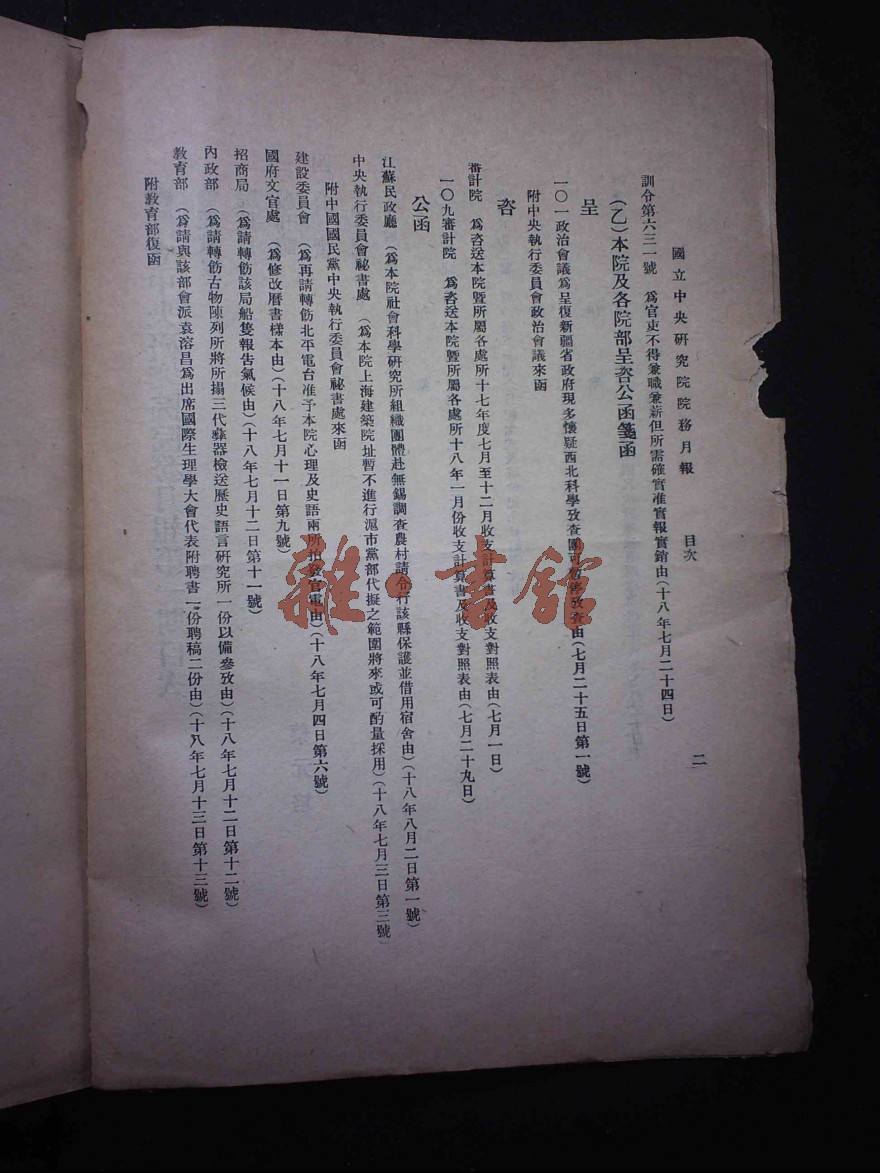 國立中央研究院院務月報　目次　二
訓令第六三一號　爲官吏不得兼職兼薪但所需確實准實報實銷由(十八年七月二十四日)
(乙)本院及各院部呈咨公函箋函
呈
一〇一政治會議爲呈復新疆省政府現多懷疑西北科學攷查團可暫停攷查由(七月二十五日第一號)
附中央執行委員會政治會議來函
咨
審計院　爲咨送本院暨所屬各處所十七年度七月至十二月收支計算書及收支對照表由(七月一日)
一〇九審計院　爲咨送本院暨所屬各處所十八年一月份收支計算書及收支對照表由(七月二十九日)
公函
江蘇民政廳　(爲本院社會科學研究所組織團體赴無錫調查農村請令行該縣保護並借用宿舍由)(十八年八月二日第一號)
中央執行委員會祕書處　(爲本院上海建築院址暫不進行滬市黨部代擬之範圍將來或可酌量採用)(十八年七月三日第三號
附中國國民黨中央執行委員會祕書處來函
建設委員會　(爲再請轉飭北平電台准予本院心理及史語兩所拍發官電由)(十八年七月四日第六號)
國府文官處　(爲修改曆書樣本由)(十八年七月十一日第九號)
招商局　(爲請轉飭該局船隻報告氣候由)(十八年七月十二日第十一號)
內政部　(爲請轉飭古物陳列所將所搨三代彝器檢送歷史語言研究所一份以備參攷由)(十八年七月十二日第十二號)
教育部　(爲請與該部會派袁溶昌爲出席國際生理學大會代表附聘書一份聘稿二份由)(十八年七月十三日第十三號)
附教育部復函
雜·書館